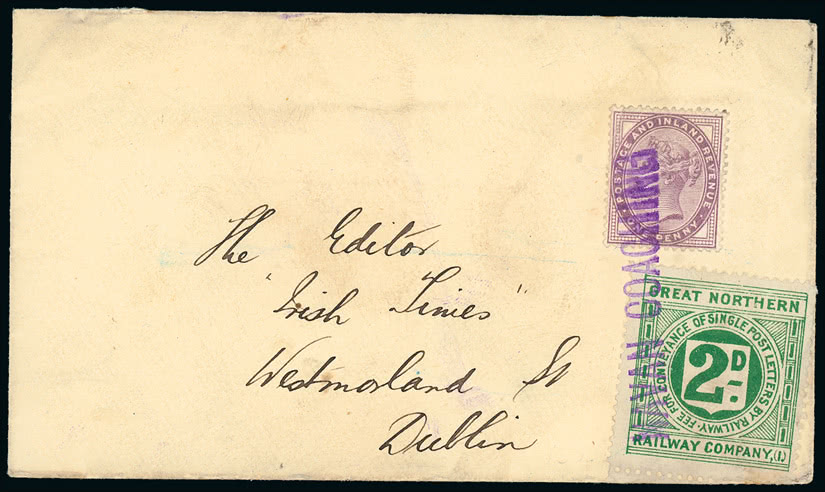 The Editor
"Irish Times"
Westmorland St
Dublin
POSTAGE AND INLAND REVENUE
ONE PENNY
NAVAN COACHING
GREAT NORTHERN
FEE FOR CONVEYANCE OF SINGLE POST LETTERS BY RAILWAY
2D
RAILWAY COMPANY, (I.)